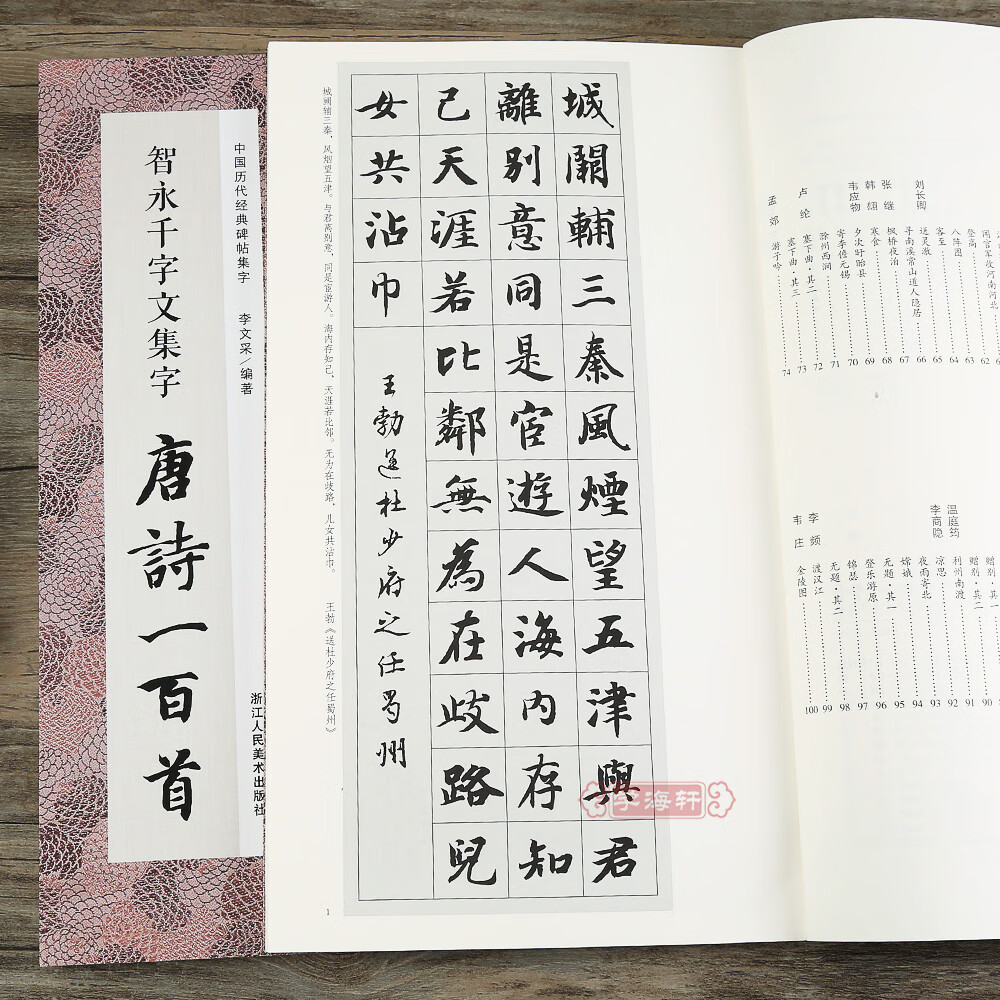 中国历代经典碑帖集字
李文采／编著
智永千字文集字
唐詩一百首
浙江人民美术出版社
城闕輔三秦風煙望五津與君
離别意同是宦遊人海内存知
己天涯若比鄰無為在歧路兒
女共沾巾
王勃送杜少府之任蜀州
城阙辅三秦，风烟望五津。与君离别意，同是宦游人。海内存知己，天涯若比邻。无为在歧路，儿女共沾巾。 王勃《送杜少府之任蜀州》
1
字海轩
闻官军收河南河北
登高 62
八阵图 63
客至 64
刘长卿 送灵澈 65
寻南溪常山道人隐居 66
张继 枫桥夜泊 67
韩翃 寒食 68
韦应物 夕次盱眙县 69
寄李儋元锡 70
滁州西涧 71
卢纶 塞下曲·其二 72
塞下曲·其三 73
孟郊 游子吟 74
赠别·其一
赠别·其二 90
温庭筠 利州南渡 91
李商隐 凉思 92
夜雨寄北 93
嫦娥 94
无题·其一 95
登乐游原 96
锦瑟 97
无题·其二 98
李频 渡汉江 99
韦庄 金陵图 100